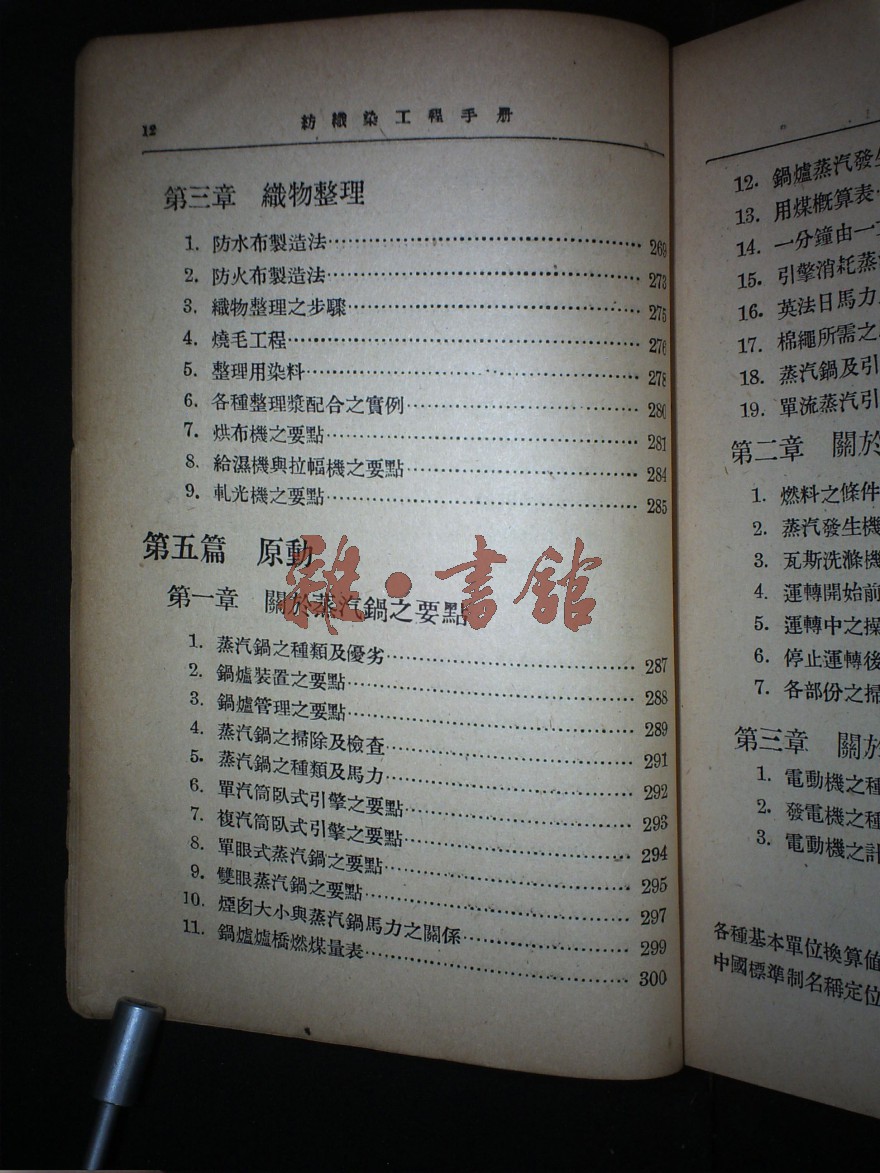 12
紡織染工程手册
第三章 織物整理
1. 防水布製造法 269
2. 防火布製造法 273
3. 織物整理之步驟 275
4. 燒毛工程 276
5. 整理用染料 278
6. 各種整理漿配合之實例 280
7. 烘布機之要點 281
8. 給濕機與拉幅機之要點 284
9. 軋光機之要點 285
第五篇 原動
第一章 關於蒸汽鍋之要點
1. 蒸汽鍋之種類及優劣 287
2. 鍋爐裝置之要點 288
3. 鍋爐管理之要點 289
4. 蒸汽鍋之掃除及檢查 291
5. 蒸汽鍋之種類及馬力 292
6. 單汽筒臥式引擎之要點 293
7. 複汽筒臥式引擎之要點 294
8. 單眼式蒸汽鍋之要點 295
9. 雙眼蒸汽鍋之要點 297
10. 煙囱大小與蒸汽鍋馬力之關係 299
11. 鍋爐爐橋燃煤量表 300
雅·書館
12. 鍋爐蒸汽發生
13. 用煤概算表
14. 一分鐘由一
15. 引擎消耗蒸
16. 英法日馬力
17. 棉繩所需之
18. 蒸汽鍋及引
19. 單流蒸汽引
第二章 關於
1. 燃料之條件
2. 蒸汽發生機
3. 瓦斯洗滌機
4. 運轉開始前
5. 運轉中之操
6. 停止運轉後
7. 各部份之掃
第三章 關於
1. 電動機之種
2. 發電機之種
3. 電動機之計
各種基本單位換算值
中國標準制名稱定位